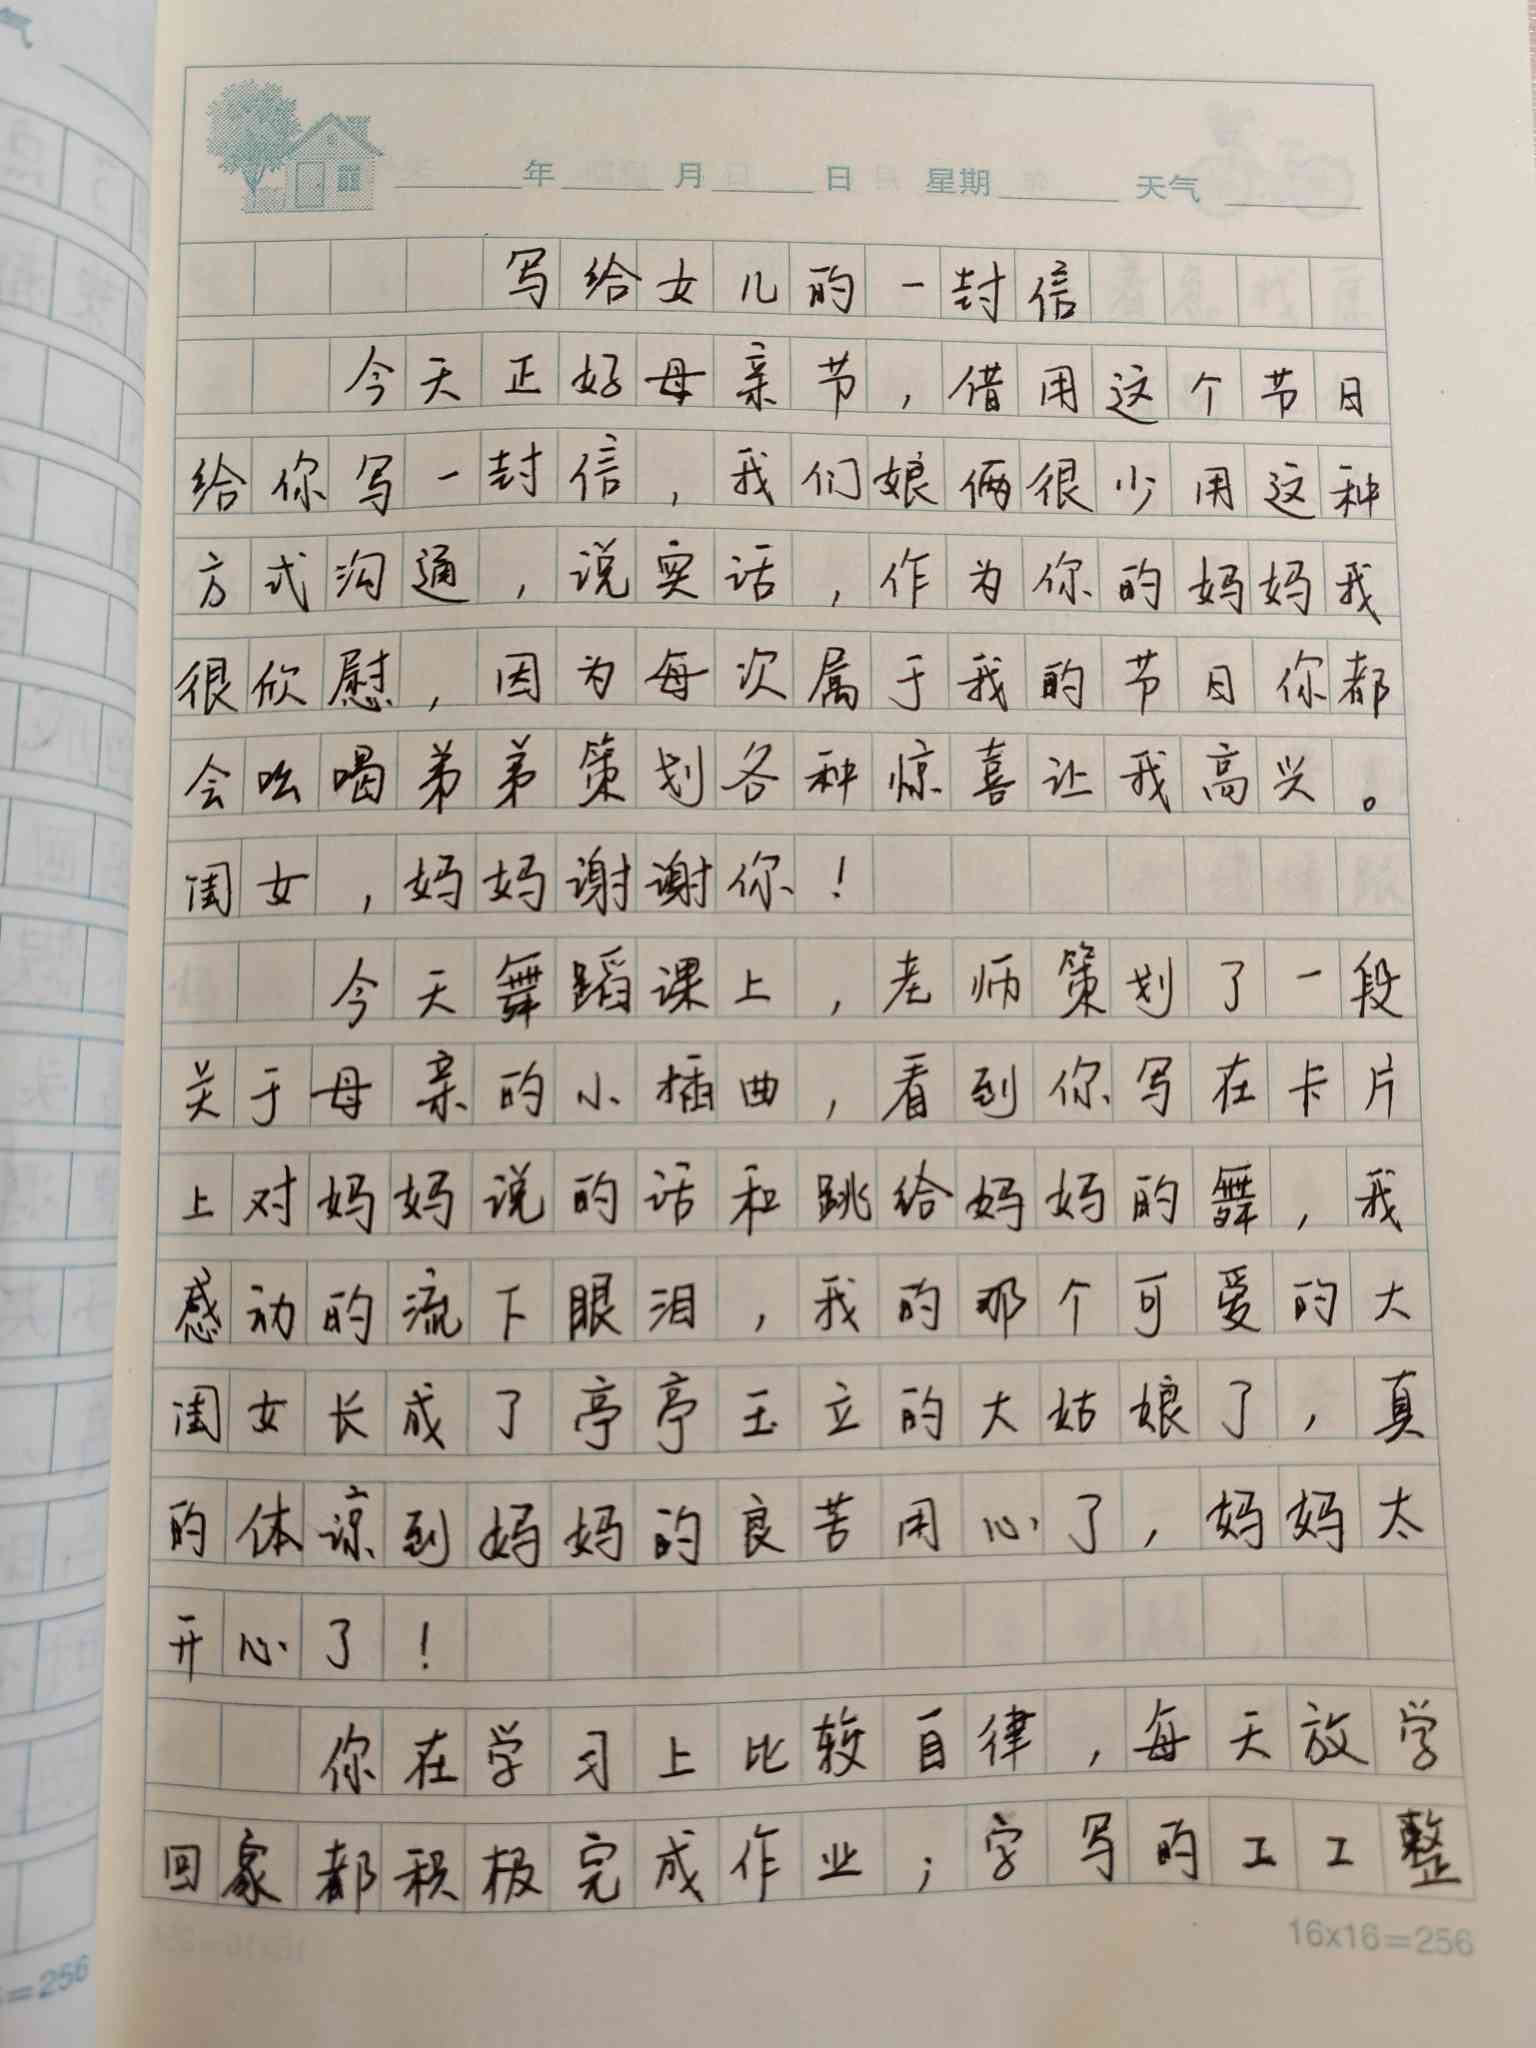 ____年____月____日 星期____ 天气____
写给女儿的一封信
今天正好母亲节,借用这个节日
给你写一封信,我们娘俩很少用这种
方式沟通,说实话,作为你的妈妈我
很欣慰,因为每次属于我的节日你都
会吆喝弟弟策划各种惊喜让我高兴。
闺女,妈妈谢谢你!
今天舞蹈课上,老师策划了一段
关于母亲的小插曲,看到你写在卡片
上对妈妈说的话和跳给妈妈的舞,我
感动的流下眼泪,我的那个可爱的大
闺女长成了亭亭玉立的大姑娘了,真
的体谅到妈妈的良苦用心了,妈妈太
开心了!
你在学习上比较自律,每天放学
回家都积极完成作业;字写的工工整
16x16=256
=256